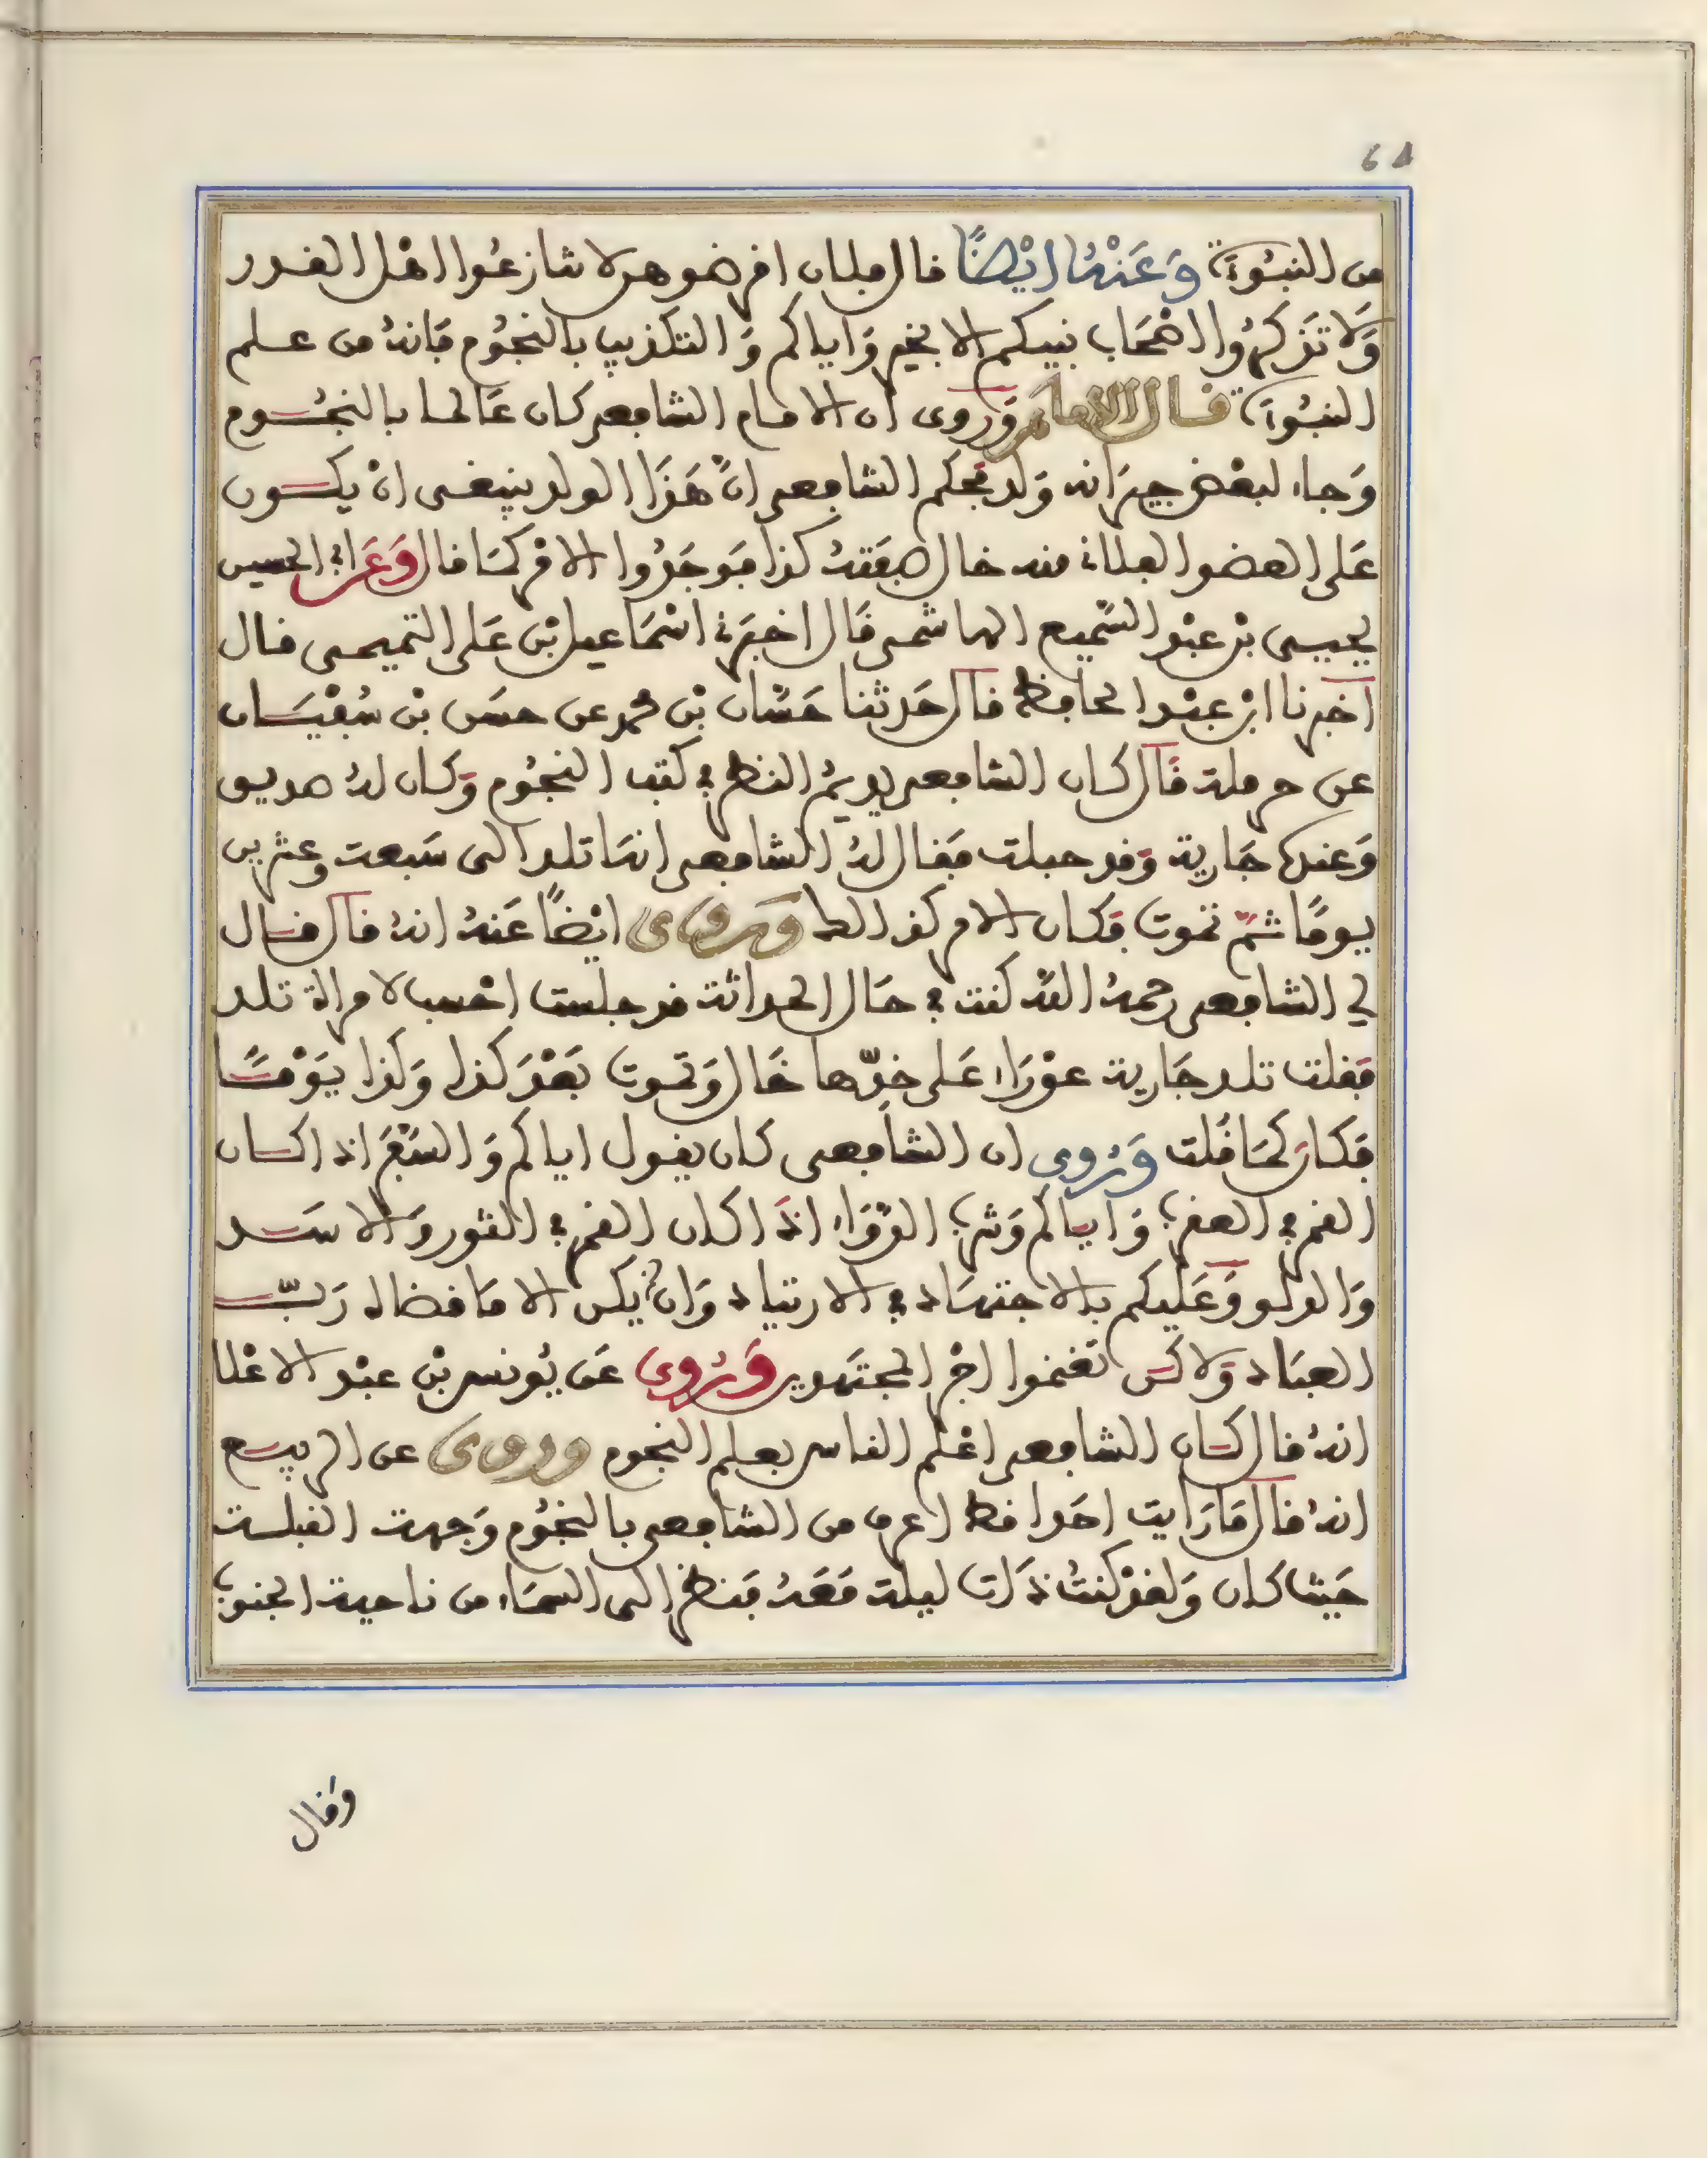 64
من النبوءة وَعَنْهُ ايْضًا قال قلبان افرضوهن لا تنازعُوا اهْل القدر
وَلَا تَذكرُوا اصْحَاب نبيكم الا بخير وَاياكم وَالتكذيب بالنجُوم فَانهُ من علم
النبُوءة قال الامام وَرُوى ان الامام الشافعي كان عَالما بالنجُوم
وَجاء لبعْض جيرَانه وَلد فحكم الشافعي انَّ هَذَا الولد ينبغي انْ يكون
عَلى العضو الفلاني منه خال صفَتهُ كذا فوجَدُوا الامْر كمَا قال وَعَن ابي الحسين
يحيى بْن عبْد السَّميع الهاشمي قَال اخبَرَني اسْمَاعيل بْن عَلى التميمي قال
اخبرنا ابْن عبْد الحافظ قال حَدثنا حَسَّان بْن محمد عن حسَن بْن سُفْيَان
عن حرملة قَال كان الشافعي يديمُ النظر في كتب النجُوم وَكان لهُ صديق
وَعندهُ جَارية وَقد حبلت فقال لهُ الشافعي انهَا تلد الى سَبعت وعشرين
يومًا ثمَّ تموت فَكان الامر كذالك وَرُوى ايْضًا عَنهُ انهُ قال قال
لي الشافعي رحمهُ اللَّه كنت في حَال الحداثة قد جلست احْسب لامراة تلد
فقلت تلد جَارية عوْرَاء عَلى خدّها خَال وَتموت بَعْدَ كذا وَكذا يَوْمًا
فَكانَ كمَا قُلت وَرُوى ان الشافعي كان يقول اياكم وَالسَّفَرَ اذا كان
القمر في العقرب وَاياكم وَشرب الدَّوَاء اذَا كان القمر في الثور وَالاسَد
وَالدلو وَعَليكم بالاجتهَاد في الارتياد وَان لم يكن الا مَا قضاه رَبّ
العبَاد وَلاكن تغنموا اجْر المجتهدين وَرُوى عَن يُونس بْن عبْد الاعْلا
انهُ قال كان الشافعي اعْلم الناس بعلم النجوم وروى عن الربيع
انهُ قال مَا رَايت احَدا قط اعرف من الشافعي بالنجُوم وَجهت القبلت
حَيْث كان وَلقدْ كنتُ ذَات ليلة مَعَهُ فَنظر الى السمَاء من ناحية الجنوب
وَقال